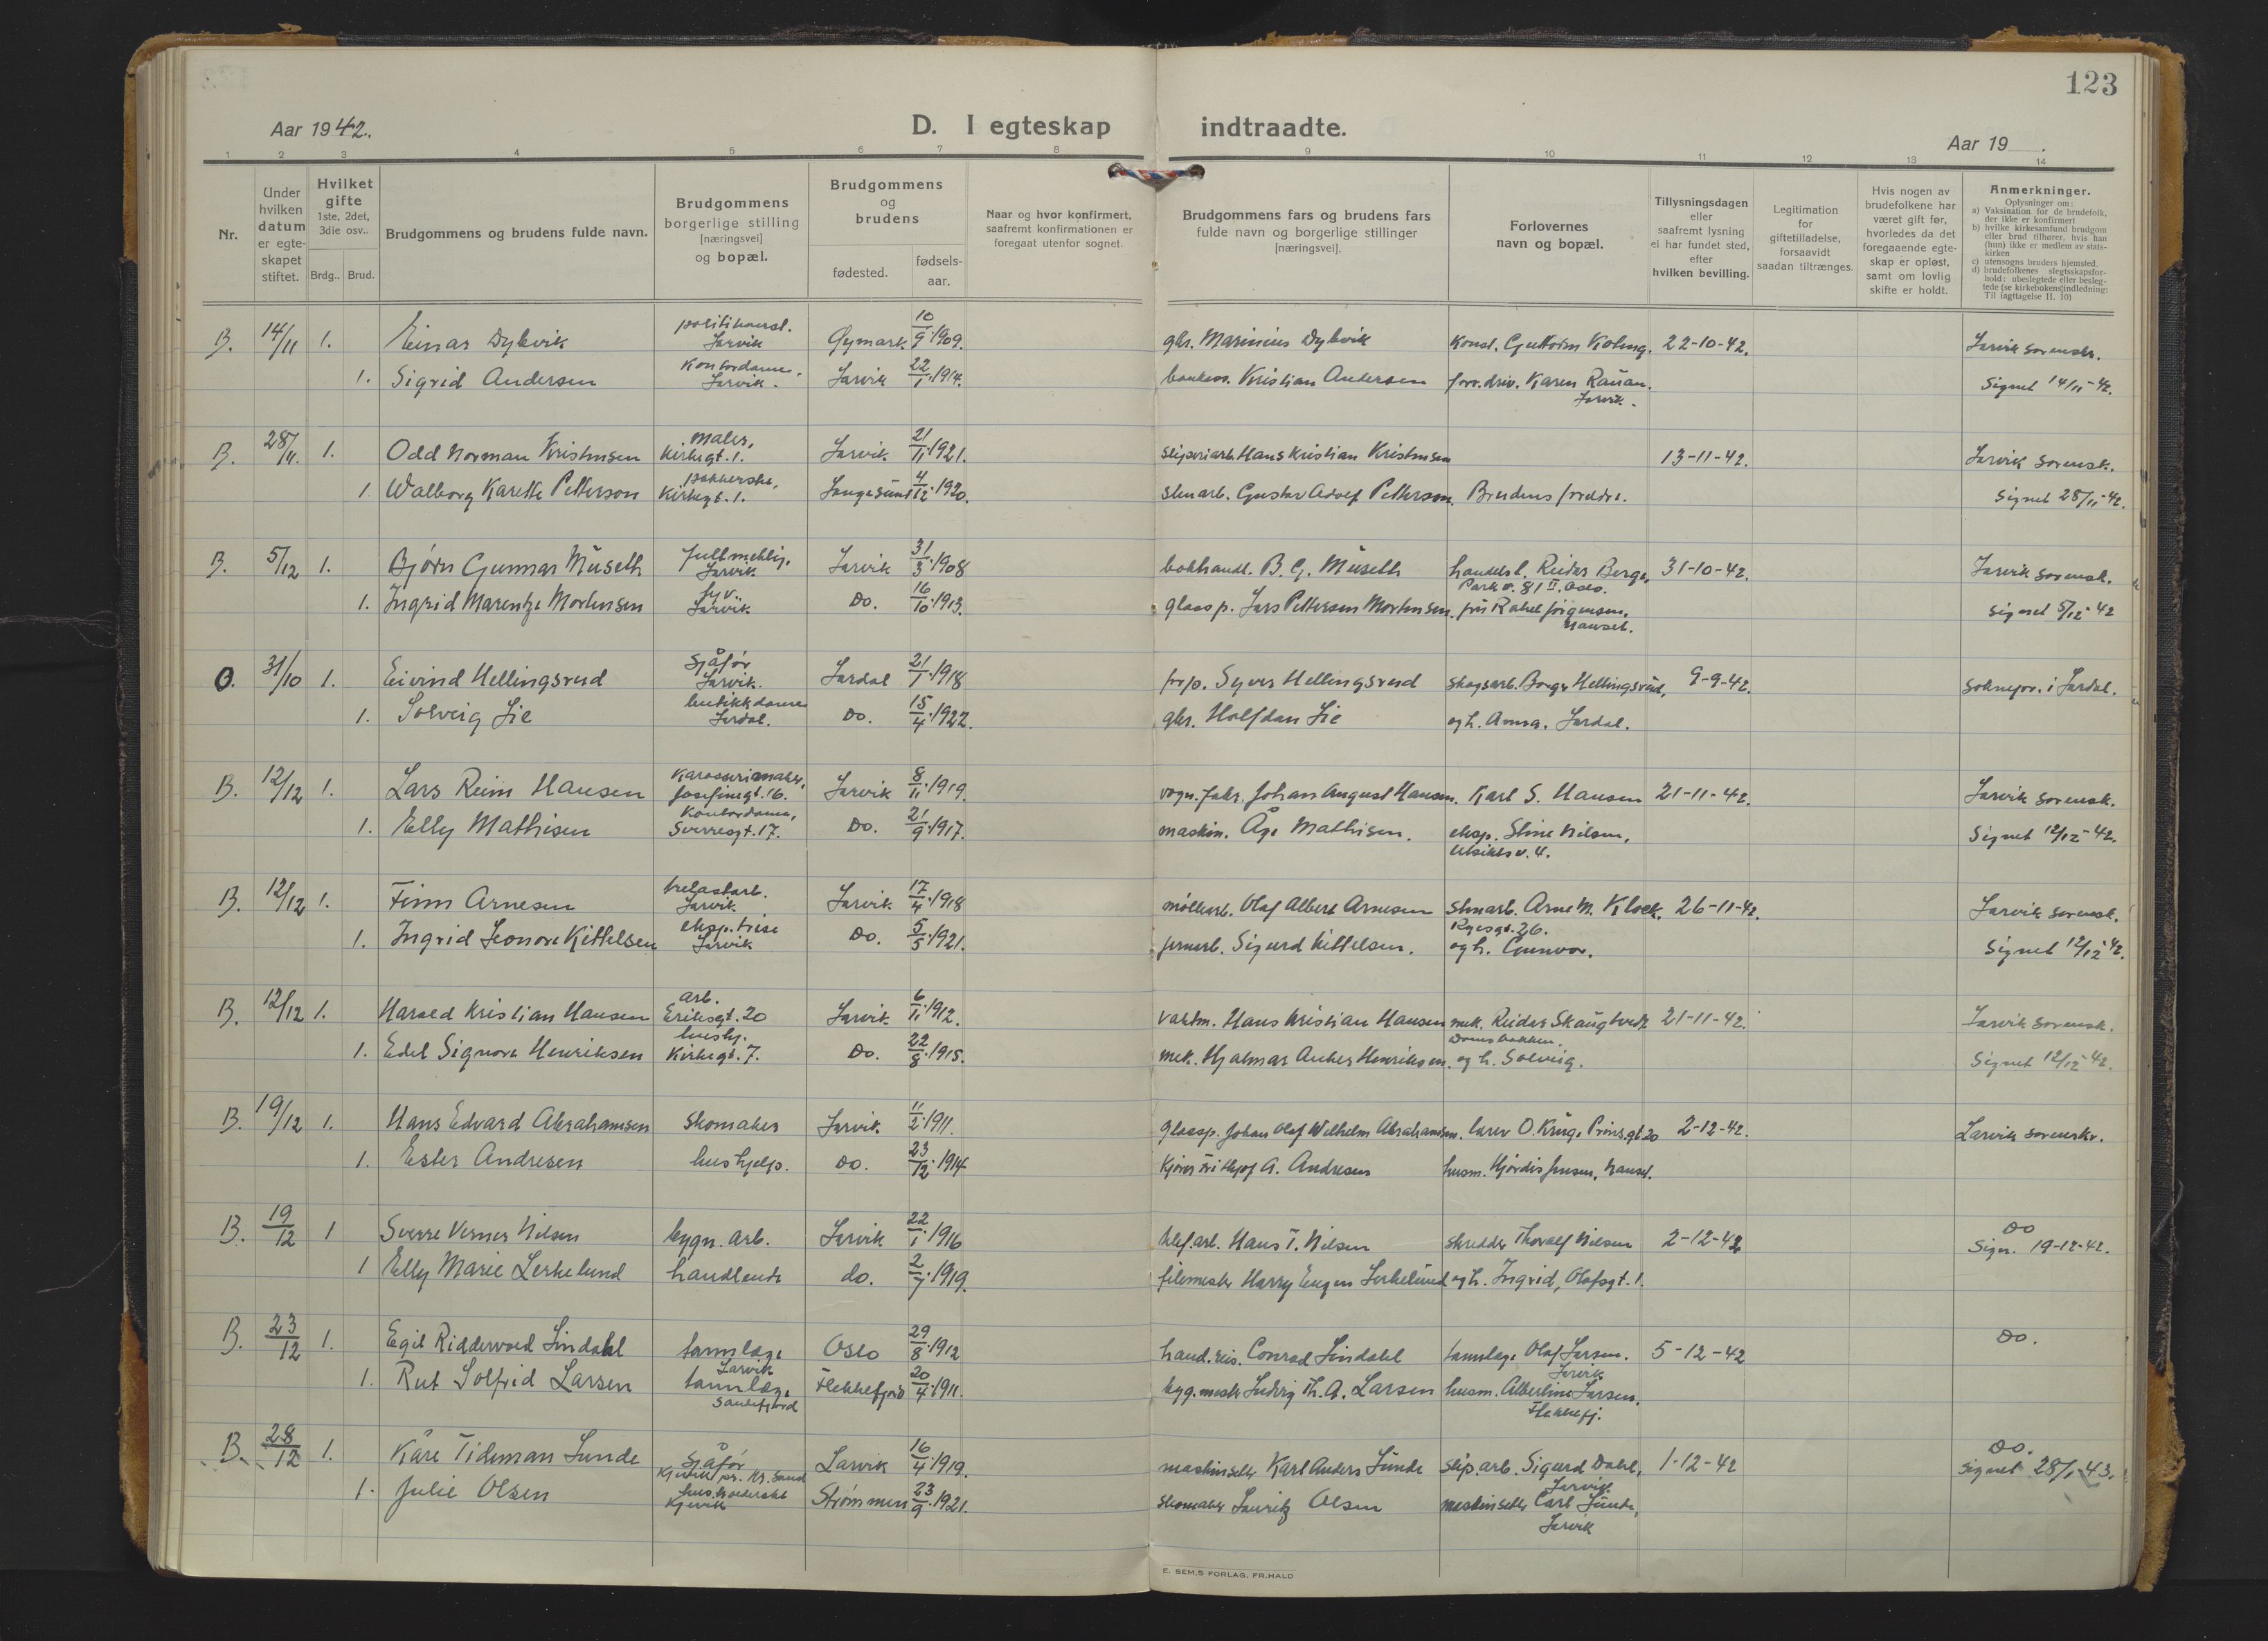 123
Aar 1942.
D. I egteskap indtraadte.
Aar 19 .
1 2 3 4 5 6 7 8 9 10 11 12 13 14
Nr.
Under
hvilken
datum
er egte-
skapet
stiftet.
Hvilket
gifte
1ste, 2det,
3die osv..
Brdg.. Brud.
Brudgommens og brudens fulde navn.
Brudgommens
borgerlige stilling
[næringsvei]
og bopæl.
Brudgommens
og
brudens
fødested.
fødsels-
aar.
Naar og hvor konfirmert,
saafremt konfirmationen er
foregaat utenfor sognet.
Brudgommens fars og brudens fars
fulde navn og borgerlige stillinger
[næringsvei].
Forlovernes
navn og bopæl.
Tillysningsdagen
eller
saafremt lysning
ei har fundet sted,
efter
hvilken bevilling.
Legitimation
for
giftetilladelse,
forsaavidt
saadan tiltrænges.
Hvis nogen av
brudefolkene har
været gift før,
hvorledes da det
foregaaende egte-
skap er opløst,
samt om lovlig
skifte er holdt.
Anmerkninger.
Oplysninger om:
a) Vaksination for de brudefolk,
der ikke er konfirmert
b) hvilke kirkesamfund brudgom
eller brud tilhører, hvis han
(hun) ikke er medlem av stats-
kirken
c) utensogns bruders hjemsted.
d) brudefolkenes slegtsskapsfor-
hold: ubeslegtede eller besleg-
tede (se kirkebokens indledning:
Til iagttagelse II. 10)
B. 14/11 1. Einar Dybvik Larvik 10/9 1909. gbr. Marinius Dybvik 22-10-42. Larvik sorenskr.
1. Sigrid Andersen Kontordame, Larvik. Larvik 22/1 1914. Kristian Andersen Karen Rauan. Larvik. Signet 14/11-42.
B. 28/11. 1. Odd Norman Kristensen Maler, Kirkegt. 1. Larvik 21/11 1921. sliperiarb. Hans Kristian Kristensen 13-11-42. Larvik sorensk.
1. Walborg Karette Petterson Kirkegt. 1. Langesund 4/12 1920. stenarb. Gustav Adolf Petterson. Brudens foreldre. Signet 28/11-42.
B. 5/12 1. Bjørn Gunnar Museth fullmektig, Larvik Larvik 31/3 1908 bokhandl. B. G. Museth Reidar Berge, Park v. 81 II Oslo. 31-10-42. Larvik sorensk.
1. Ingrid Marentze Mortensen Larvik Do. 16/10 1913. glassp. Lars Petterson Mortensen. fru Rakel Jørgensen, Nanset. Signet 5/12-42
O. 31/10 1. Eivind Hellingsrud Sjåfør Larvik. Lardal 21/1 1918 forp. Syver Hellingsrud skogsarb. Borger Hellingsrud, 9-9-42. soknepr. i Lardal.
1. Solveig Lie butikkdame Lardal. Do. 15/4 1922. gbr. Halfdan Lie og h. Anna. Lardal.
B. 12/12 1. Lars Reim Hansen Karosserimaker, Josefinegt. 16. Larvik 8/11 1919. vogn.fabr. Johan August Hansen. Karl S. Hansen 21-11-42. Larvik sorensk.
1. Elly Mathisen Kontordame, Sverresgt. 17. Do. 21/9 1917. maskin. Åge Mathisen. eksp. Stine Nilsen, Utsikts v. 4. Signet 12/12-42.
B. 12/12 1. Finn Arnesen trelastarb. Larvik Larvik 17/4 1918 møllearb. Olaf Albert Arnesen stenarb. Arne M. Klock, 26-11-42. Larvik sorensk.
1. Ingrid Leonore Kittelsen eksp.trise Larvik Do. 5/5 1921. jernarb. Sigurd Kittelsen. og h. Gunvor. Signet 12/12-42.
B. 12/12 1. Harald Kristian Hansen arb. Eriksgt. 20 Larvik 6/11 1912. vaktm. Hans Kristian Hansen mek. Reidar Skaugtvedt 21-11-42. Larvik sorensk.
1. Edel Signora Henriksen hushj. Kirkegt. 7. Do. 22/8 1915. mek. Hjalmar Anker Henriksen. og h. Solveig. Signet 12/12-42.
B. 19/12 1. Hans Edvard Abrahamsen Skomaker Larvik 11/2 1911. glassp. Johan Olaf Wilhelm Abrahamsen. O. Krüge Prins.gt 20 2-12-42. Larvik sorenskr.
1. Ester Andresen hushjelp. Do. 23/12 1914 kjører Frithjof A. Andresen husm. Hjørdis Jensen, Nanset.
B. 19/12 1 Sverre Verner Nilsen bygn. arb. Larvik 22/1 1916 Hans T. Nilsen skredder Thoralf Nilsen 2-12-42 Do Sign. 19-12-42.
1 Elly Marie Lerkelund handlende do. 2/7 1919. Harry Eugen Lerkelund og h. Ingrid, Olafsgt. 1.
B. 23/12 1. Egil Riddervold Lindahl tannlæge Larvik Oslo 29/8 1912 hand.reis. Conrad Lindahl tannlæge Olaf Larsen. Larvik 5-12-42 Do.
1. Rut Solfrid Larsen tannlæge Sandefjord Flekkefjord 20/4 1911. byg.mester Ludvig Th. A. Larsen husm. Albertine Larsen. Flekkefj.
B. 28/12 1. Kåre Tideman Lunde Sjåfør Kjevik pr. Kr.sand Larvik 16/4 1919. maskinsetter Karl Anders Lunde slip.arb. Sigurd Dahl, Larvik 1-12-42 Do. Signet 28/1 43.
1. Julie Olsen Kjevik Strømmen 23/9 1921. skomaker Lauritz Olsen maskinsetter Carl Lunde, Larvik
E. SEM,S FORLAG, FR.HALD